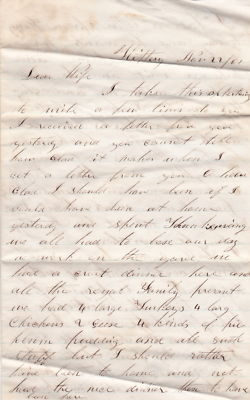 Kittery Nov 27/
Dear Wife
I take this
to write a few lines to
I received a letter from you
yesterday and you cannot tell
how glad it makes when I
get a letter from you O how
glad I should have been if I
could have been at home
yesterday and spent Thanksgiving
we all had to lose our day
s work in the yard we
had a great dinner here and
all the royal family present
we had 4 large Turkeys 4 larg
Chickens 2 Geese 4 kinds of pie
plum pudding and all such
stuff but I should rather
have been to home and not
had the nice dinner than to have
been here